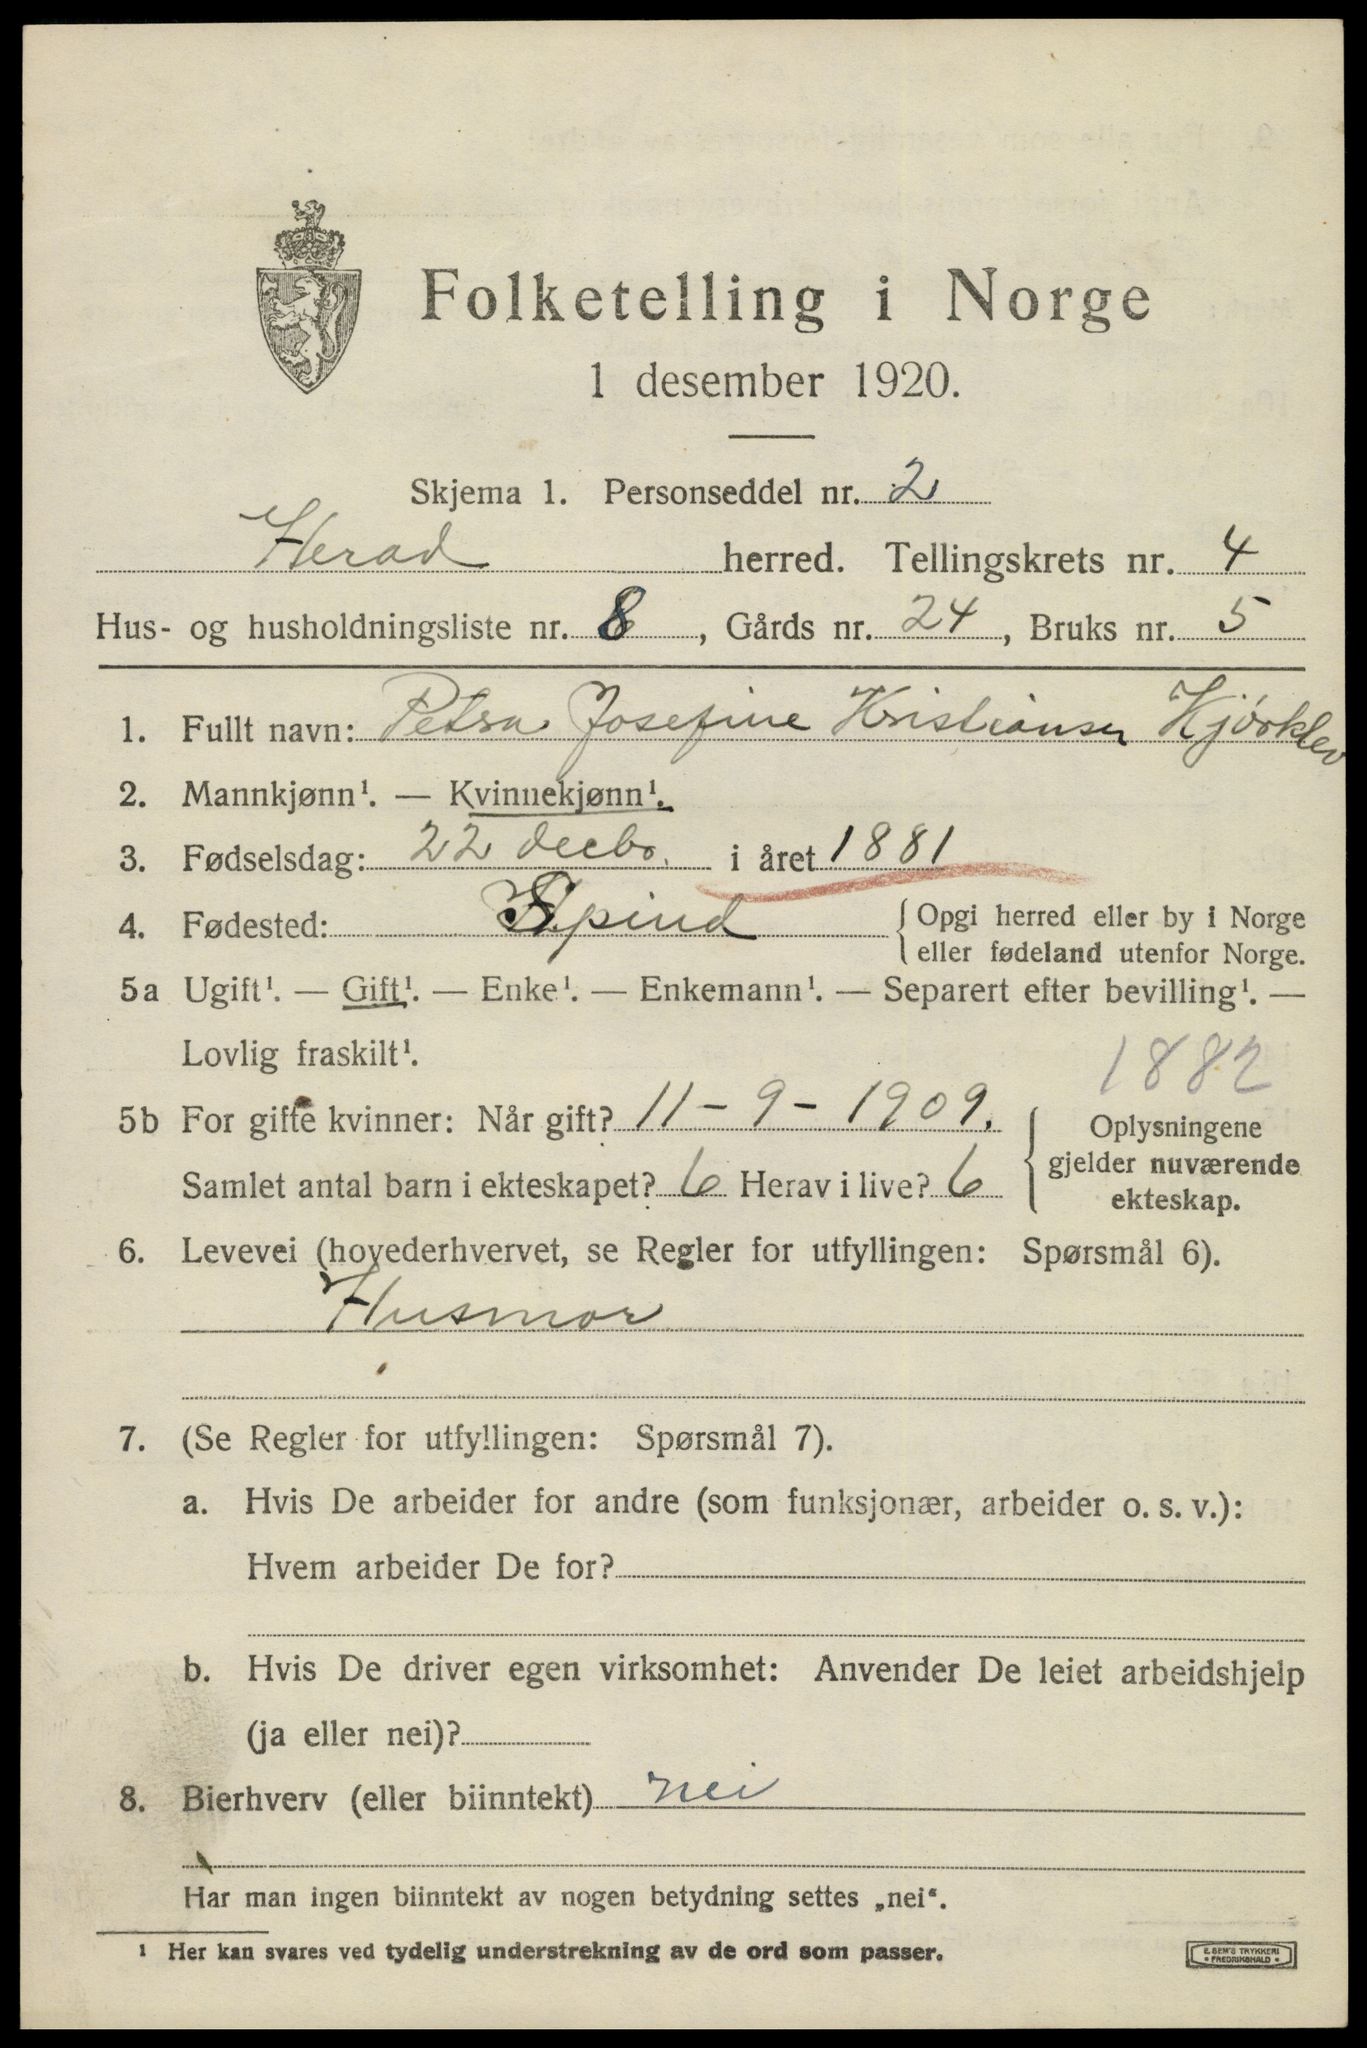 Folketelling i Norge
1 desember 1920.
Skjema 1. Personseddel nr. 2
Herad herred. Tellingskrets nr. 4
Hus- og husholdningsliste nr. 8, Gårds nr. 24, Bruks nr. 5
1. Fullt navn: Petra Josefine Kristiansen Kjørklev
2. Mannkjønn¹. — Kvinnekjønn¹.
3. Fødselsdag: 22 decbr. i året 1881
4. Fødested: Spind { Opgi herred eller by i Norge
eller fødeland utenfor Norge.
5a Ugift¹. — Gift¹. — Enke¹. — Enkemann¹. — Separert efter bevilling¹. —
Lovlig fraskilt¹.
1882
5b For gifte kvinner: Når gift? 11-9-1909.
Samlet antal barn i ekteskapet? 6 Herav i live? 6
{ Oplysningene
gjelder nuværende
ekteskap.
6. Levevei (hovederhvervet, se Regler for utfyllingen: Spørsmål 6).
Husmor
7. (Se Regler for utfyllingen: Spørsmål 7).
a. Hvis De arbeider for andre (som funksjonær, arbeider o. s. v.):
Hvem arbeider De for?
b. Hvis De driver egen virksomhet: Anvender De leiet arbeidshjelp
(ja eller nei)?
8. Bierhverv (eller biinntekt) nei
Har man ingen biinntekt av nogen betydning settes „nei“.
¹ Her kan svares ved tydelig understrekning av de ord som passer.
E. SEM'S TRYKKERI
• FREDRIKSHALD •